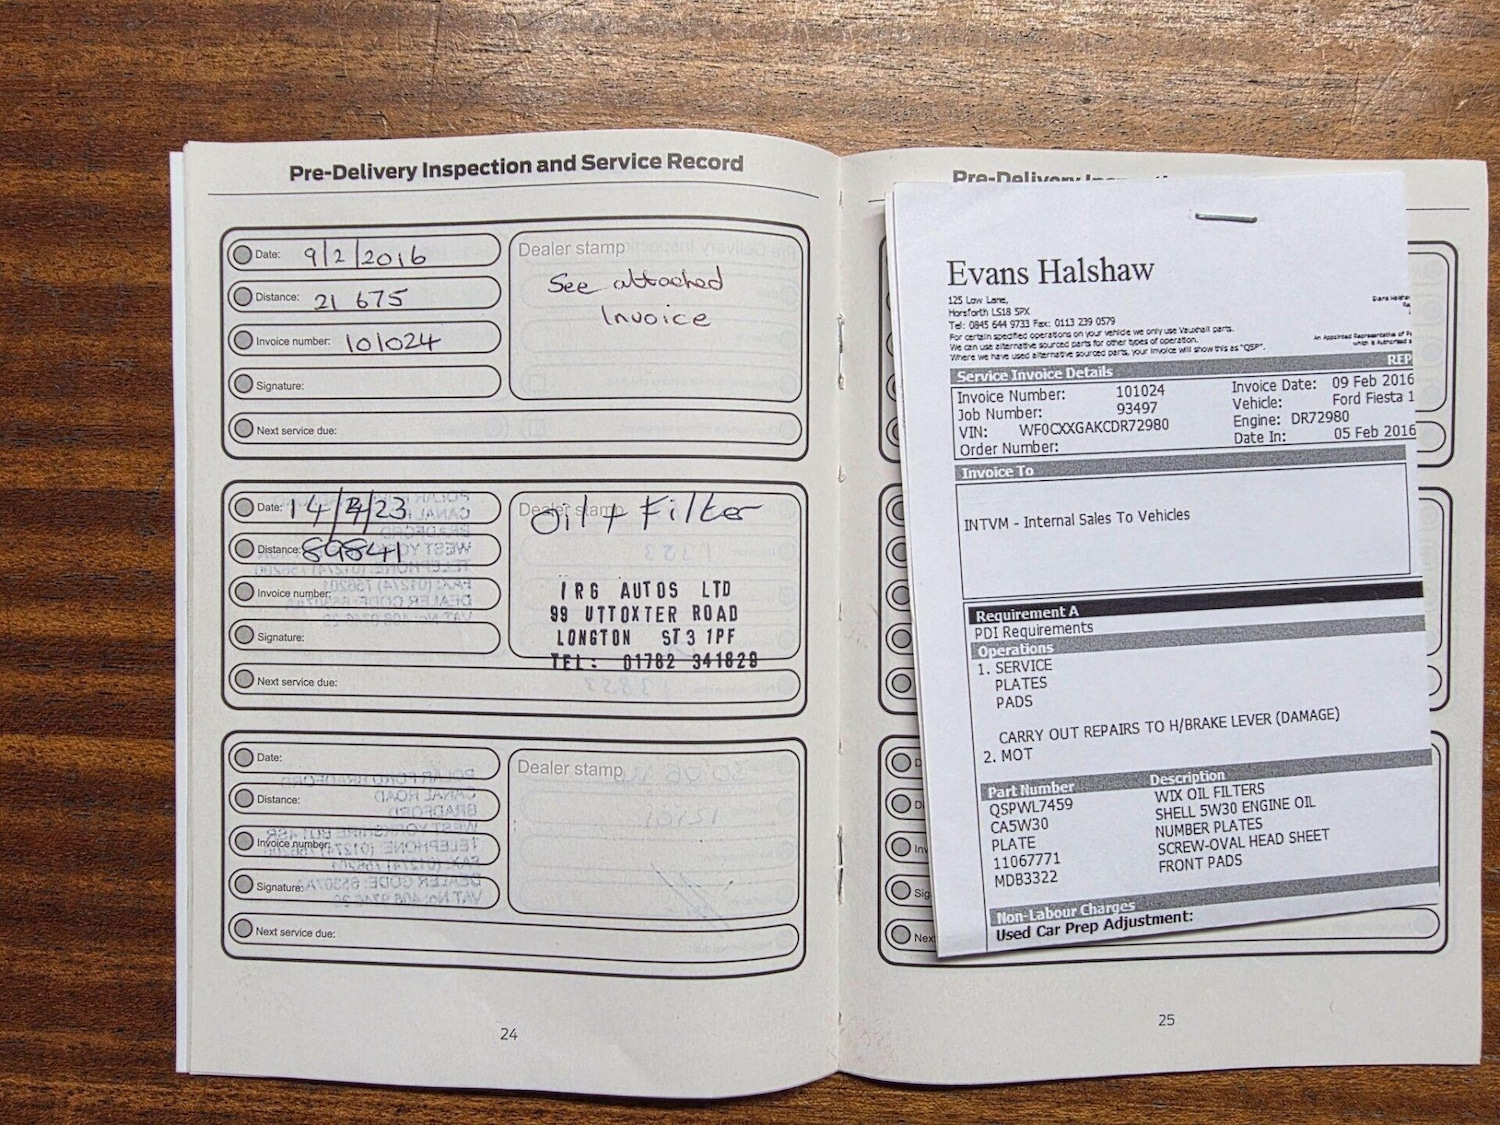 Pre-Delivery Inspection and Service Record
Date: 9/2/2016
Distance: 21 675
Invoice number: 101024
Signature:
Next service due:
Dealer stamp
See attached
Invoice
Date: 14/ /23
Distance: 89841
Invoice number:
Signature:
Next service due:
Dealer stamp
Oil + Filter
IRG AUTOS LTD
99 UTTOXTER ROAD
LONGTON ST3 1PF
TEL: 01782 341829
Date:
Distance:
Invoice number:
Signature:
Next service due:
Dealer stamp
24
Pre-Delivery
Evans Halshaw
125 Low Lane,
Horsforth LS18 5PX
Tel: 0845 644 9733 Fax: 0113 239 0579
For certain specified operations on your vehicle we only use Vauxhall parts.
We can use alternative sourced parts for other types of operation.
Where we have used alternative sourced parts, your invoice will show this as "QSP".
An Appointed Representative of
which is Authorised
Service Invoice Details
REP
Invoice Number: 101024
Job Number: 93497
VIN: WF0CXXGAKCDR72980
Order Number:
Invoice Date: 09 Feb 2016
Vehicle: Ford Fiesta 1
Engine: DR72980
Date In: 05 Feb 2016
Invoice To
INTVM - Internal Sales To Vehicles
Requirement A
PDI Requirements
Operations
1. SERVICE
PLATES
PADS
CARRY OUT REPAIRS TO H/BRAKE LEVER (DAMAGE)
2. MOT
Part Number Description
QSPWL7459 WIX OIL FILTERS
CA5W30 SHELL 5W30 ENGINE OIL
PLATE NUMBER PLATES
11067771 SCREW-OVAL HEAD SHEET
MDB3322 FRONT PADS
Non-Labour Charges
Used Car Prep Adjustment:
Inv
Sig
Next
25